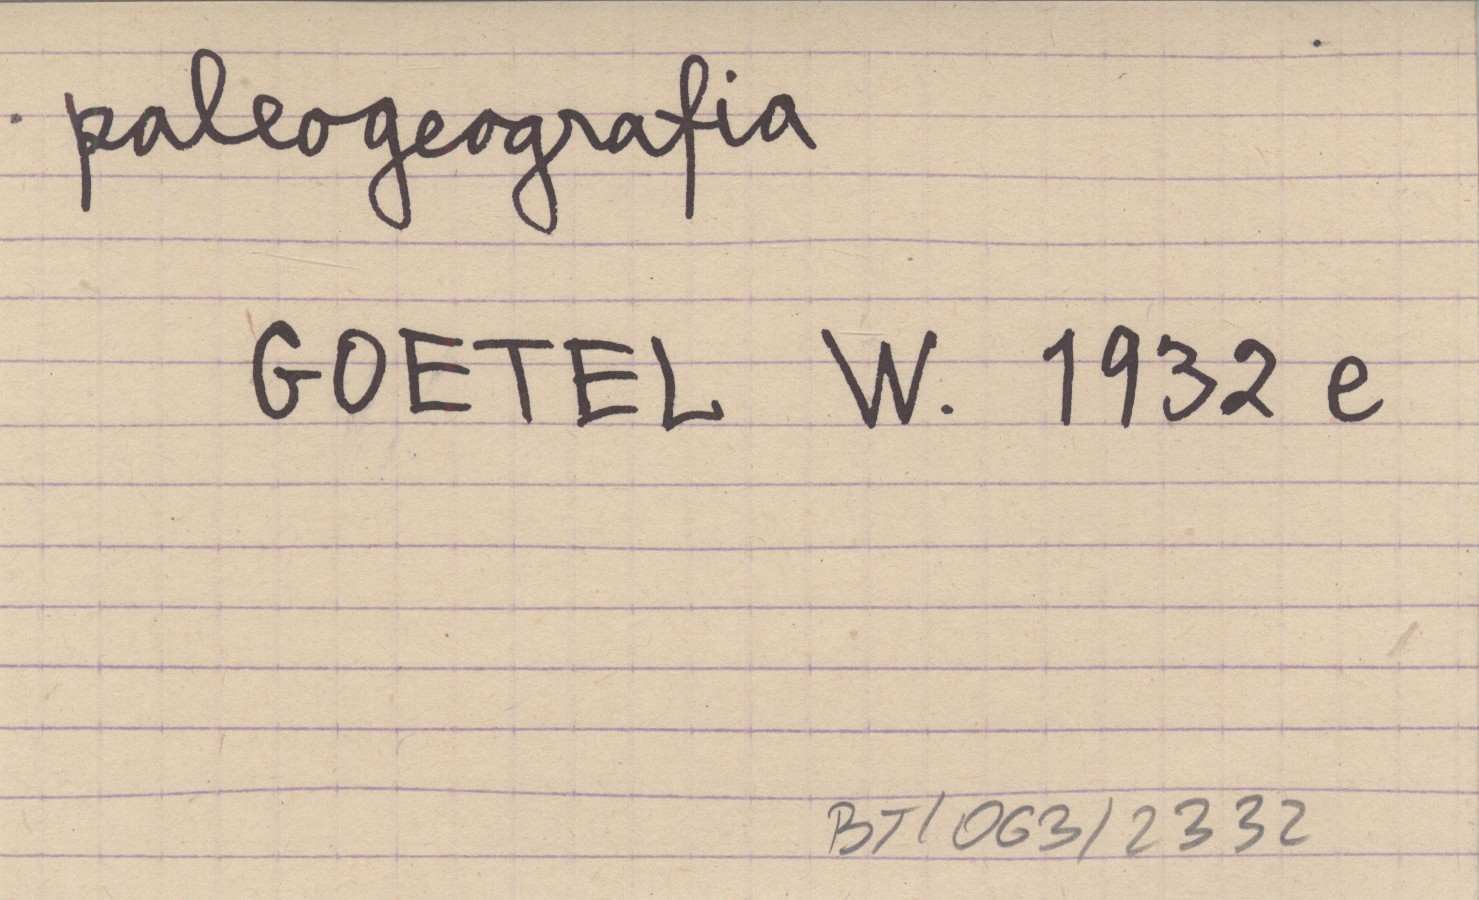 paleogeografia
GOETEL W. 1932 e
BT/063/2332